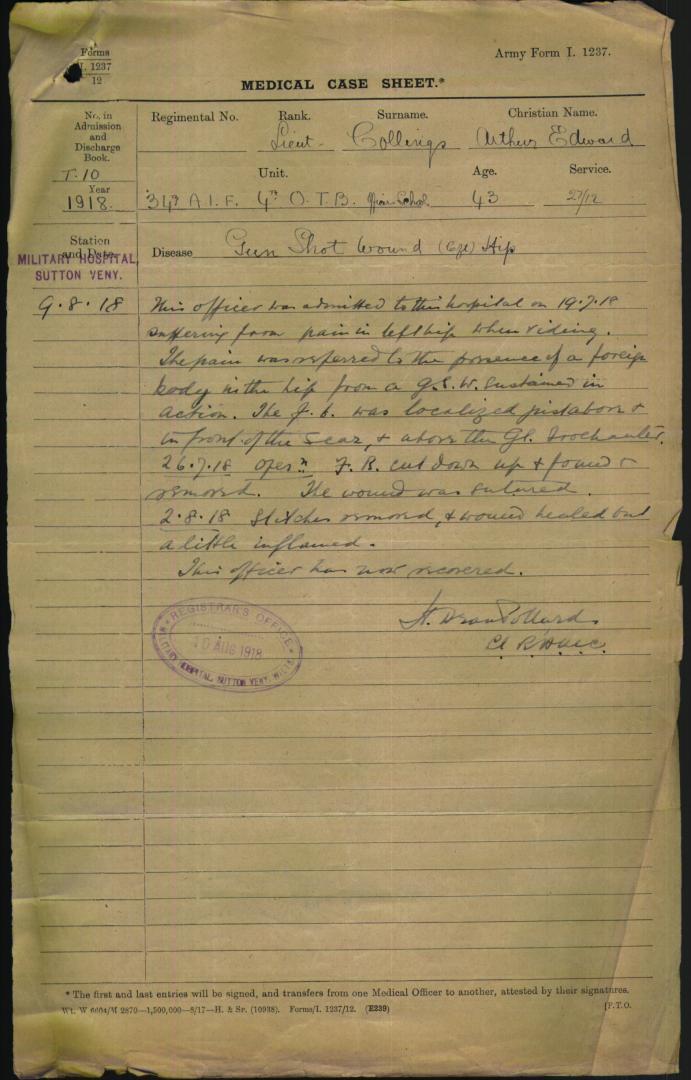 Forms
I. 1237
12
Army Form I. 1237.
MEDICAL CASE SHEET.*
No. in Admission and Discharge Book.
T.10
Year
1918.
Regimental No. Rank. Surname. Christian Name.
Lieut. Collings Arthur Edward
Unit. Age. Service.
34th A.I.F. 4th O.T.B. School 43 2 7/12
Station and Date.
MILITARY HOSPITAL,
SUTTON VENY.
Disease Gun Shot Wound Hip
9.8.18 This officer was admitted to this hospital on 19.7.18
suffering from pain in left hip when riding.
The pain was referred to the presence of a foreign
body in the hip from a G.S.W. sustained in
action. The f.b. was localized just above &
in front of the scar, & above the Gt. Trochanter.
26.7.18 Opern F.B. cut down up & found &
removed. The wound was sutured.
2.8.18 Stitches removed, & wound healed but
a little inflamed.
This officer has now recovered.
Pollard
R.A.M.C.
REGISTRAR'S OFFICE
10 AUG 1918
MILITARY HOSPITAL, SUTTON VENY, WILTS.
* The first and last entries will be signed, and transfers from one Medical Officer to another, attested by their signatures.
Wt. W 6604/M 2870—1,500,000—8/17—H. & Sr. (10938). Forms/I. 1237/12. (E239) [P.T.O.